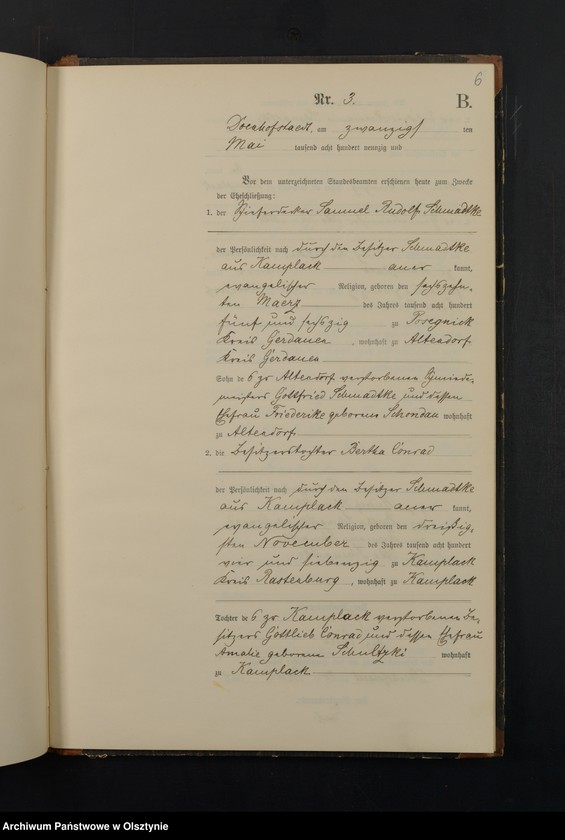 6
Nr. 3. B.
Doenhofstaedt, am zwanzigsten
Mai tausend acht hundert neunzig und
Vor dem unterzeichneten Standesbeamten erschienen heute zum Zwecke
der Eheschließung:
1. der Schieferdecker Samuel Rudolf Schmadtke
der Persönlichkeit nach durch den Besitzer Schmadtke
aus Kamplack aner kannt,
evangelischer Religion, geboren den sechszehn-
ten Maerz des Jahres tausend acht hundert
fünf und sechszig zu Posegnick
Kreis Gerdauen, wohnhaft zu Altendorf
Kreis Gerdauen
Sohn des zu Altendorf verstorbenen
Gottfried Schmadtke und dessen
Ehefrau Friederike geborene Schondau wohnhaft
zu Altendorf
2. die Besitzerstochter Bertha Conrad
der Persönlichkeit nach durch den Besitzer Schmadtke
aus Kamplack aner kannt,
evangelischer Religion, geboren den dreißig-
sten November des Jahres tausend acht hundert
vier und siebenzig zu Kamplack
Kreis Rastenburg, wohnhaft zu Kamplack
Tochter des zu Kamplack verstorbenen Be-
sitzers Gottlieb Conrad und dessen Ehefrau
Amalie geborene Schultzki wohnhaft
zu Kamplack
Archiwum Państwowe w Olsztynie